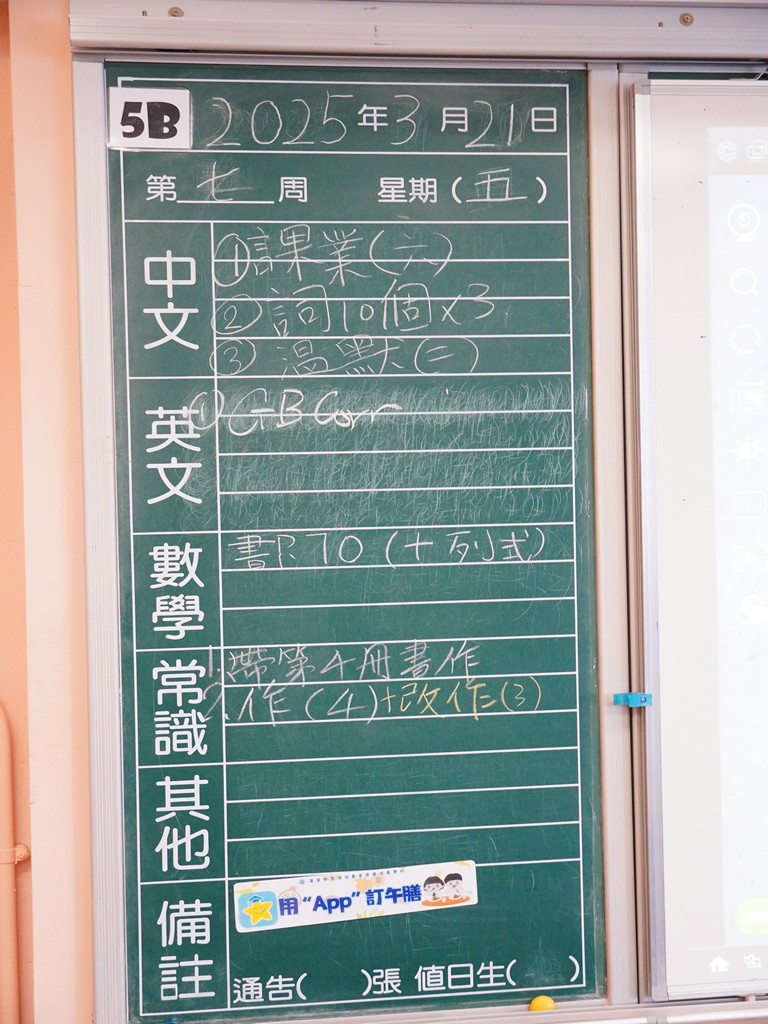 5B 2025年3月21日
第七周 星期(五)
中文
①課業(六)
②詞10個x3
③温默(二)
英文
①GB Corr
數學
書P.70(十列式)
常識
1.帶第4冊書作
2.作(4)+改作(3)
其他
備註
用"App"訂午膳
通告( )張 值日生( )